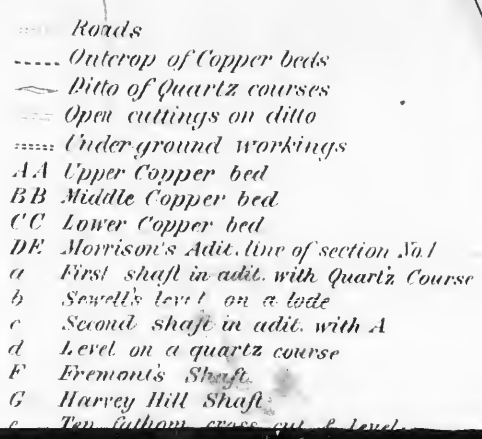 Roads
Outcrop of Copper beds
Ditto of Quartz courses
Open cuttings on ditto
Under ground workings
AA Upper Copper bed
BB Middle Copper bed
CC Lower Copper bed
DE Morrison's Adit. line of section No. 1
a First shaft in adit. with Quartz Course
b Sewell's level on a lode
c Second shaft in adit. with A
d Level on a quartz course
F Fremont's Shaft
G Harvey Hill Shaft
e Ten fathom cross cut & Level